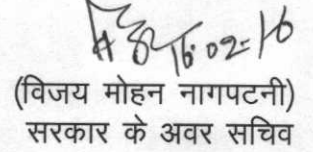 16.02.16
(विजय मोहन नागपटनी)
सरकार के अवर सचिव